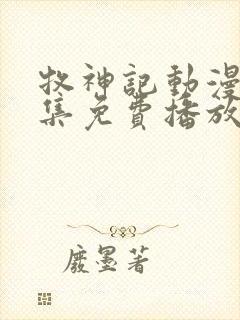 牧神記動漫
集免費播放
廢墨著